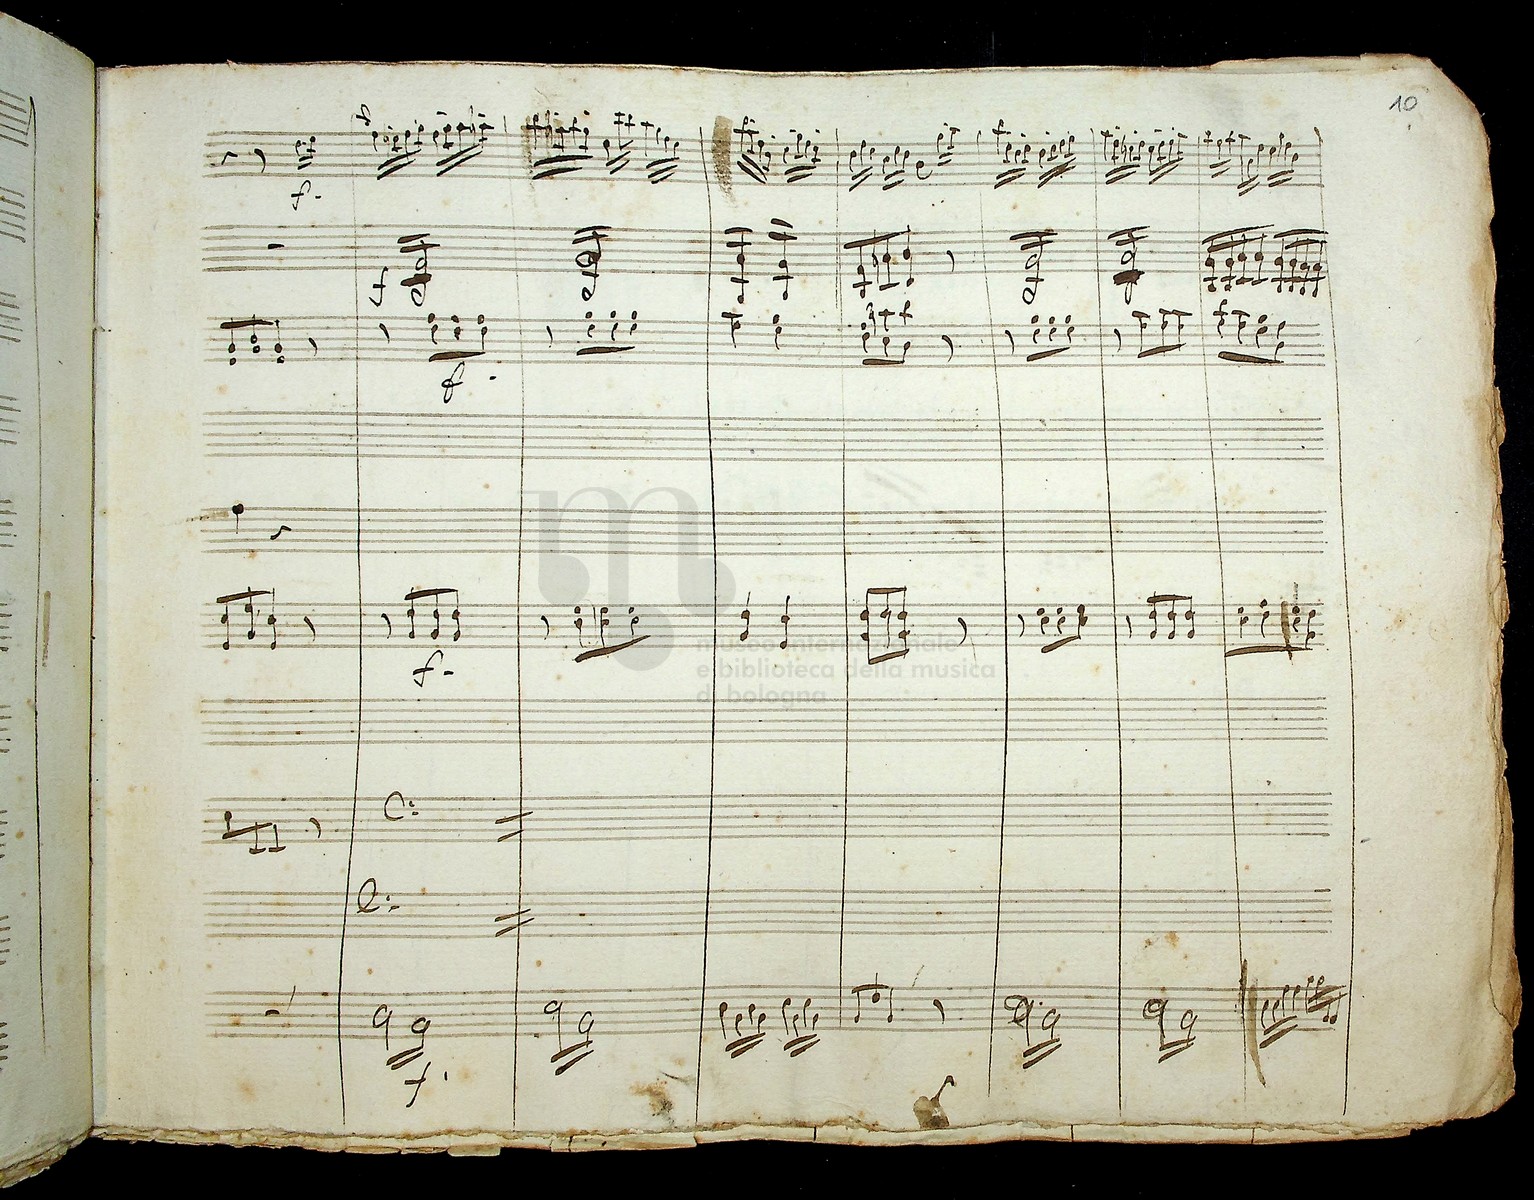 10
f.
f
f.
museo internazionale
e biblioteca della musica
di bologna
f.
f.